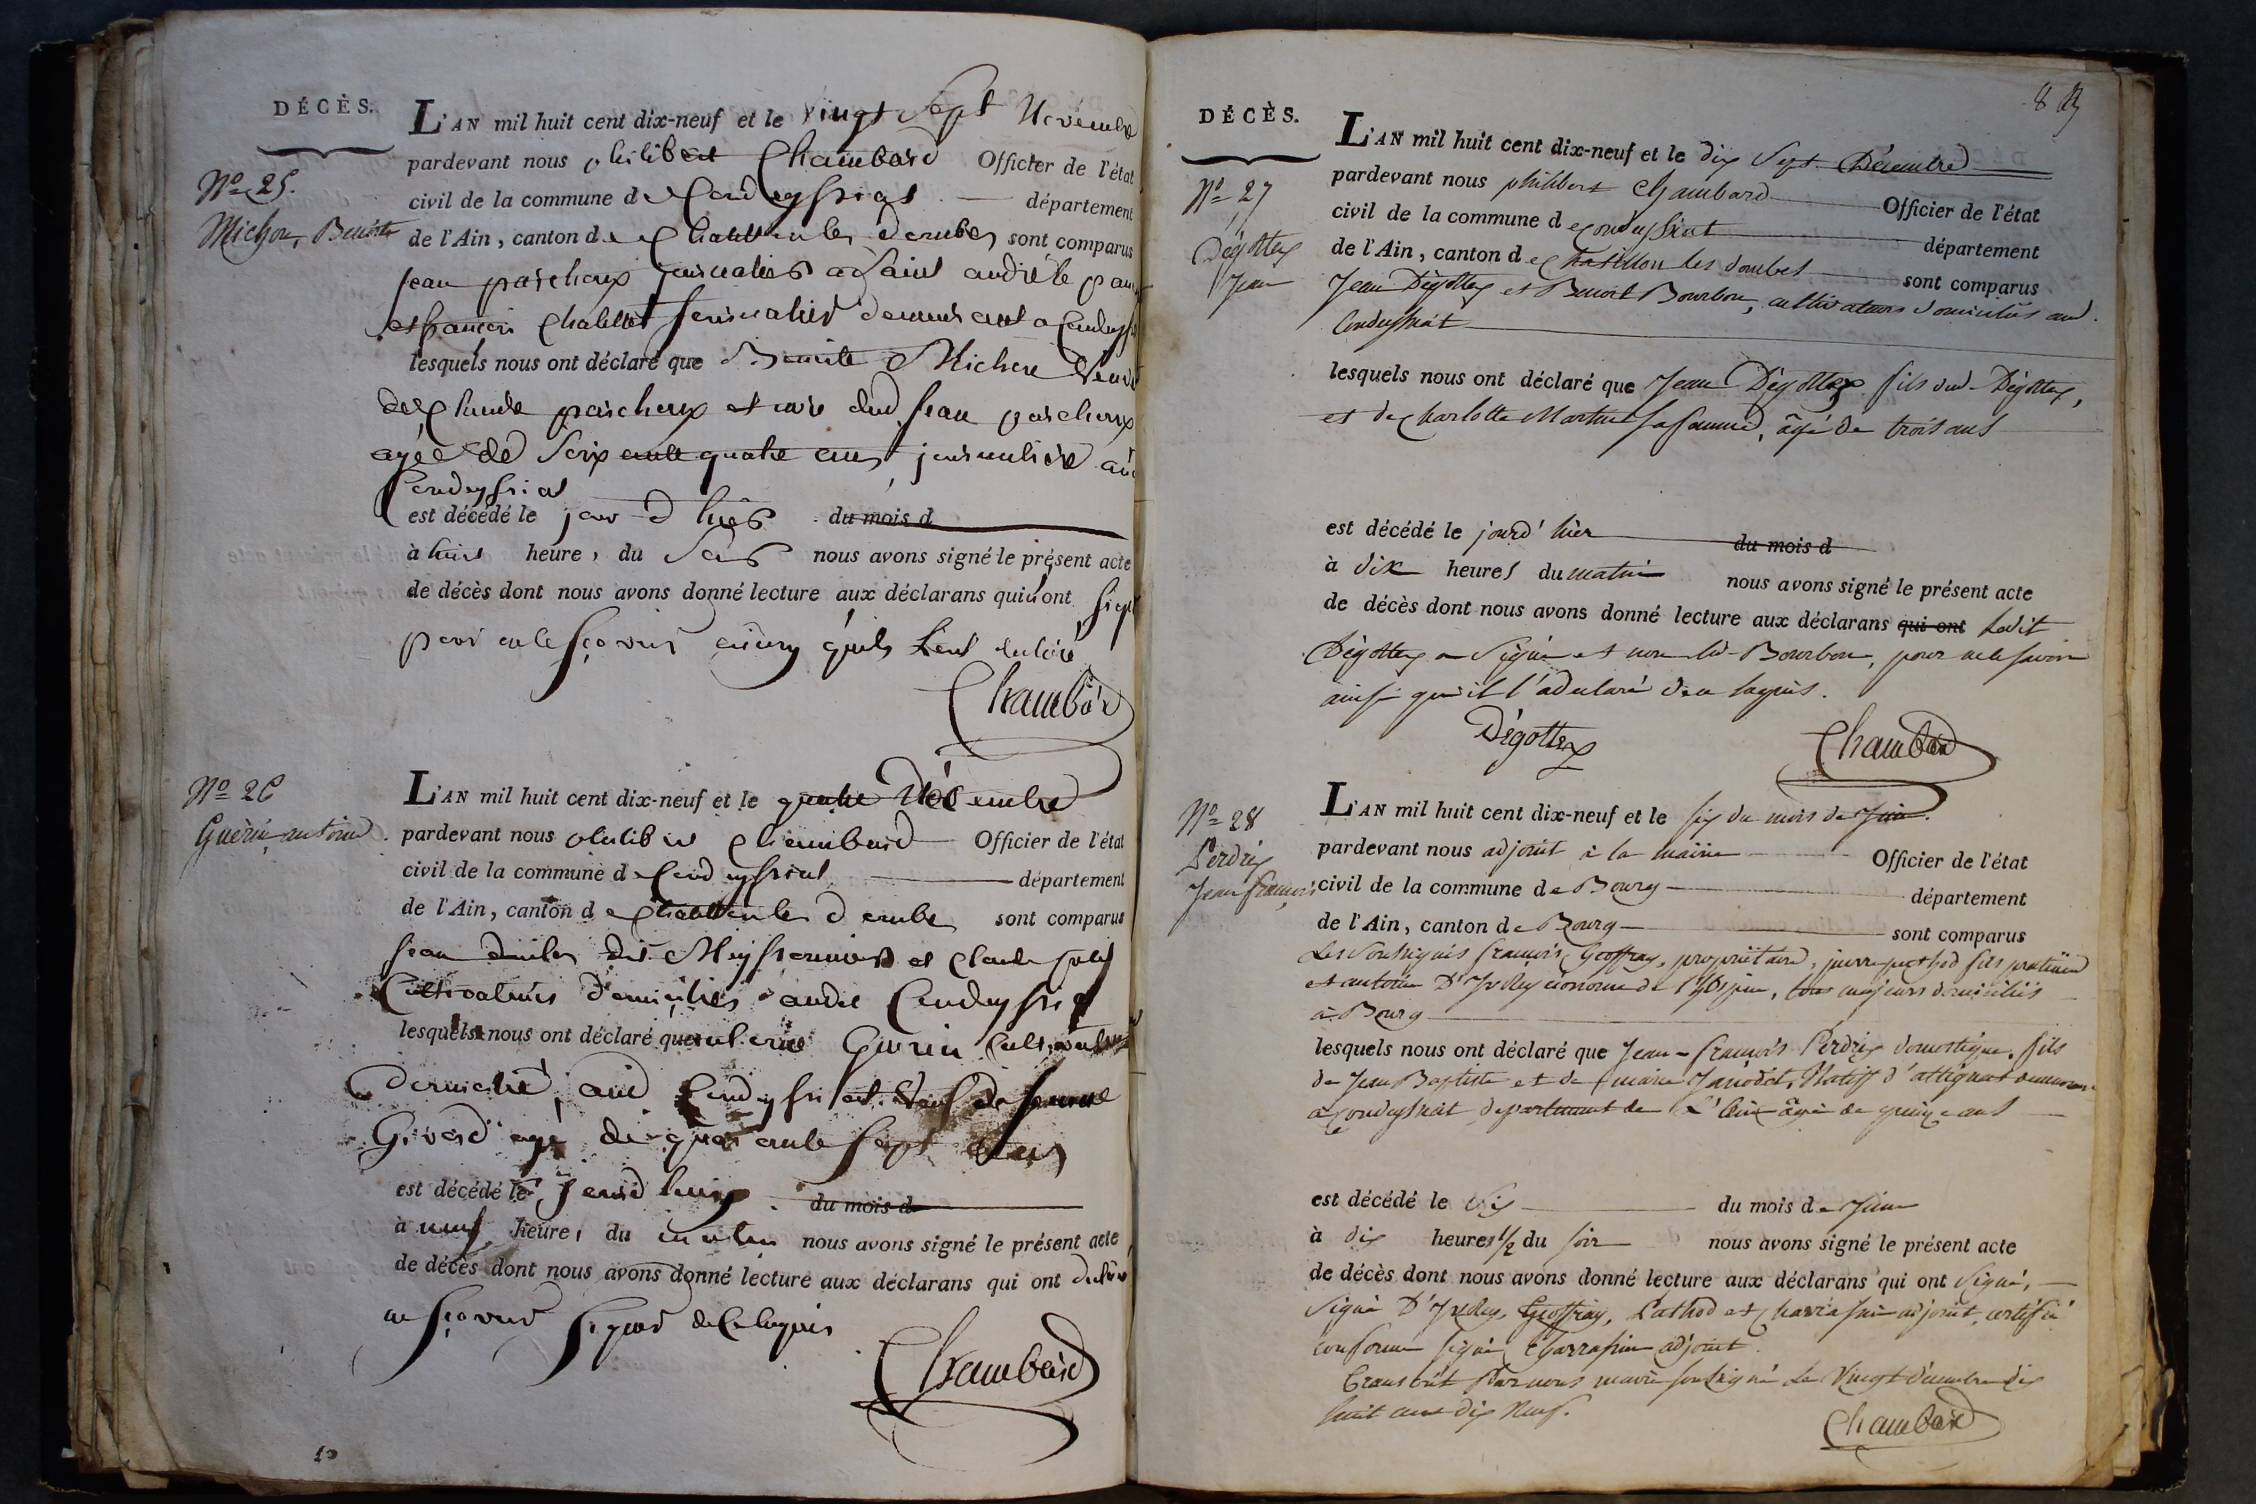 DÉCÈS.
L'AN mil huit cent dix-neuf et le vingt Sept Novembre
pardevant nous philibert Chambard Officier de l'état
civil de la commune de Condeyssiat département
de l'Ain, canton de Chatillon les dombes sont comparus
No 25.
Michon, Benoite
jean parcheux journalier a Saint andré le
et françois Chatillet journalier demeurant a Condeyssiat
lesquels nous ont déclaré que Benoite Michon Veuve
de Claude parcheux et mère dud. jean parcheux
agée de Soixante quatre ans journalière aud
Condeyssiat
est décédé le jour d'hier du mois d
à huit heure, du Soir nous avons signé le présent acte
de décès dont nous avons donné lecture aux déclarans qui n'ont signé
pour ne le sçavoir qu'ils l'ont déclaré
Chambard
No 26
Guérin antoine
L'AN mil huit cent dix-neuf et le quatre Décembre
pardevant nous philibert Chambard Officier de l'état
civil de la commune de Condeyssiat département
de l'Ain, canton de Chatillon les dombes sont comparus
jean dit et Claude
Cultivateurs domiciliés audit Condeyssiat
lesquels nous ont déclaré que antoine Guérin Cultivateur
domicilié aud Condeyssiat veuf de
Girard agé de quarante Sept ans
est décédé le jourd'huy du mois d
à neuf heure, du matin nous avons signé le présent acte
de décès dont nous avons donné lecture aux déclarans qui ont déclaré
ne sçavoir signer de ce requis
Chambard
10
8
DÉCÈS.
No 27
Dégottex
Jean
L'AN mil huit cent dix-neuf et le dix Sept Décembre
pardevant nous philibert Chambard Officier de l'état
civil de la commune de Condeyssiat département
de l'Ain, canton de Chatillon les dombes sont comparus
Jean Dégottex et Benoit Bourbon, cultivateurs domiciliés aud.
Condeyssiat
lesquels nous ont déclaré que Jean Dégottex fils dud. Dégottex,
et de Charlotte Martin sa femme, âgé de trois ans
est décédé le jourd'hier du mois d
à dix heures du matin nous avons signé le présent acte
de décès dont nous avons donné lecture aux déclarans qui ont ledit
Dégottex a Signé et non led. Bourbon, pour ne le savoir
ainsi qu'il l'a déclaré de ce requis.
Dégottex
Chambard
No 28
Perdrix
Jean françois
L'AN mil huit cent dix-neuf et le six du mois de Juin.
pardevant nous adjoint à la mairie Officier de l'état
civil de la commune de Bourg département
de l'Ain, canton de Bourg sont comparus
Les Soussignés françois Geoffray, propriétaire, pierre pathod fils praticien
et antoine D'Ivoley économe de l'hospice, tous majeurs domiciliés
à Bourg
lesquels nous ont déclaré que Jean-françois Perdrix domestique. fils
de Jean Baptiste et de marie Janodet, Natif d'attignat
a Condeyssiat departement de L'Ain âgé de quinze ans
est décédé le Six du mois de Juin
à dix heures 1/2 du soir nous avons signé le présent acte
de décès dont nous avons donné lecture aux déclarans qui ont Signé,
Signé Geoffray, Pathod et Charrassin adjoint, certifié
conforme signé Charrassin adjoint.
Transcrit Par nous maire soussigné Le Vingt décembre dix
huit cent dix Neuf.
Chambard